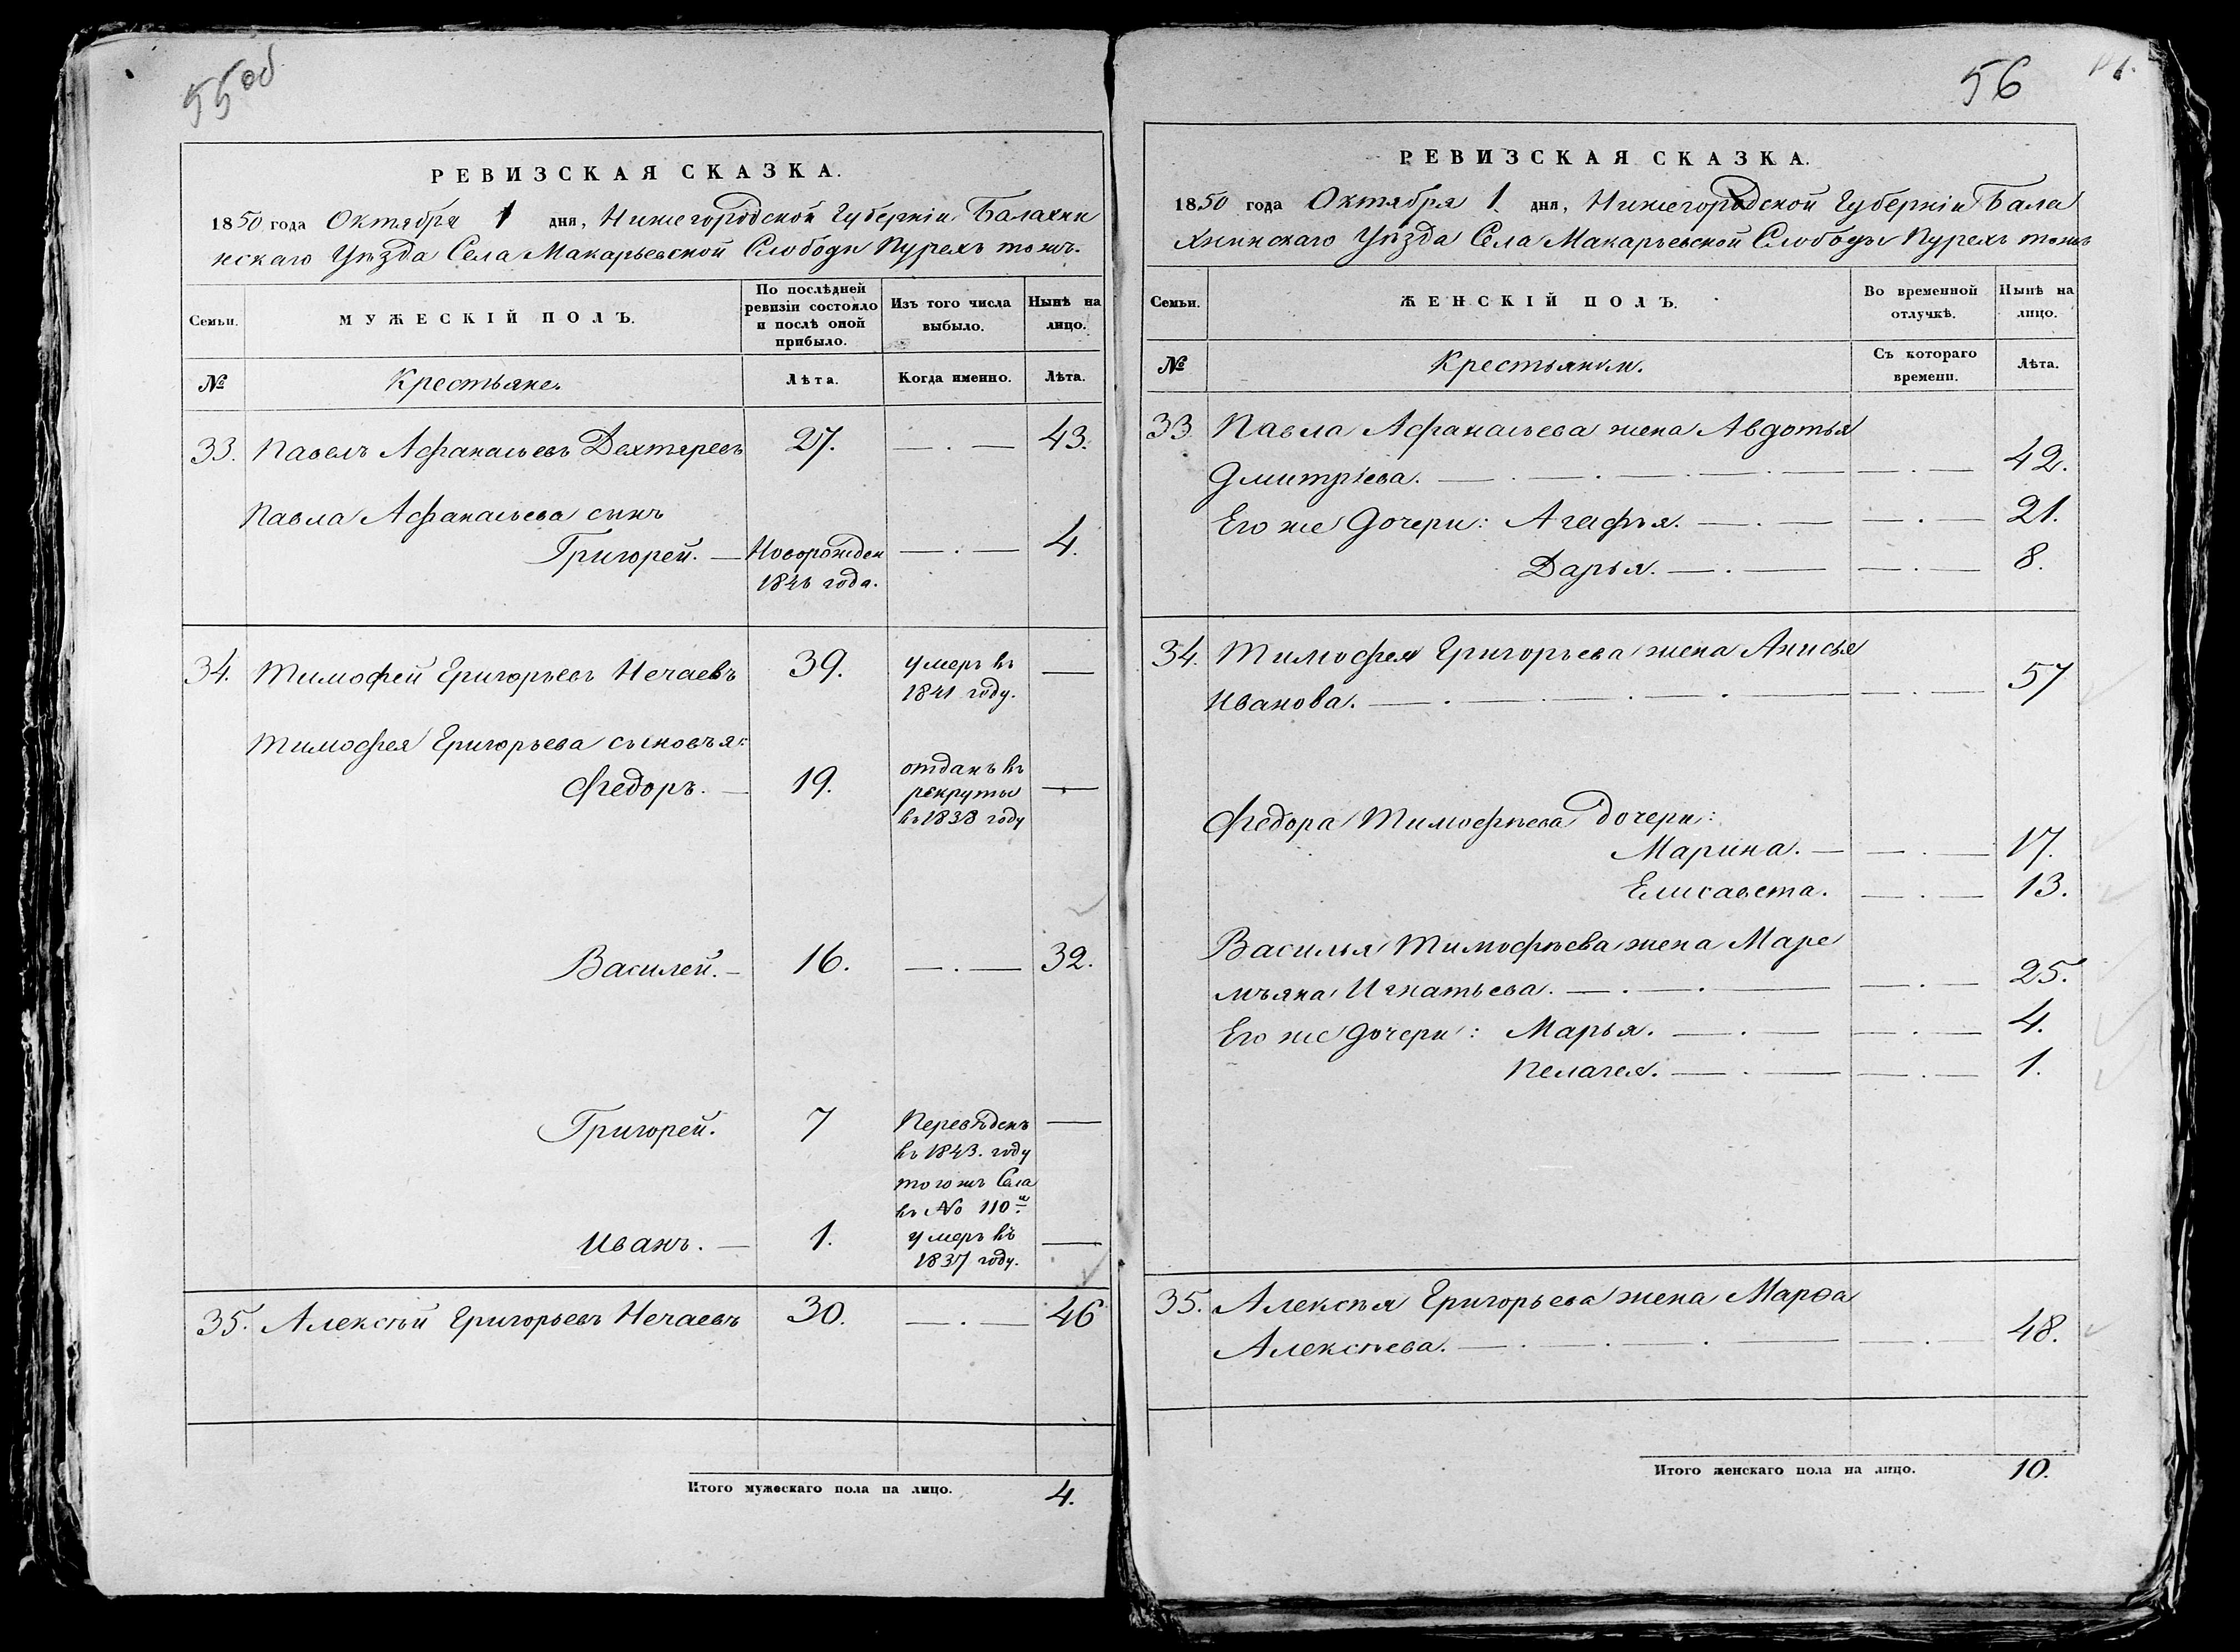 55 об
РЕВИЗСКАЯ СКАЗКА.
1850 года Октября 1 дня, Нижегородской Губерніи Балахни
нскаго Уѣзда Села Макарьевской Слободы Пурехъ тожъ.
Семьи.
МУЖЕСКІЙ ПОЛЪ.
По послѣдней
ревизіи состояло
и послѣ оной
прибыло.
Изъ того числа
выбыло.
Нынѣ на
лицо.
№
Крестьяне.
Лѣта.
Когда именно.
Лѣта.
33. Павелъ Афанасьевъ Дехтеревъ 27. — . — 43.
Павла Афанасьева сынъ
Григорей. — Новорожден — . — 4.
1846 года.
34. Тимофей Григорьевъ Нечаевъ 39. умеръ въ —
1841 году.
Тимофея Григорьева сыновья:
Федоръ. — 19. отданъ въ —
рекруты
въ 1838 году
Василей. — 16. — . — 32.
Григорей. 7 Переведенъ —
въ 1843. году
тогожъ Села
въ № 110й.
Иванъ. — 1. умеръ въ —
1837 году.
35. Алексѣй Григорьевъ Нечаевъ 30. — . — 46
Итого мужескаго пола на лицо. 4.
56
РЕВИЗСКАЯ СКАЗКА.
1850 года Октября 1. дня, Нижегородской Губерніи Бала
хнинскаго Уѣзда Села Макарьевской Слободы Пурехъ тожъ
Семьи.
ЖЕНСКІЙ ПОЛЪ.
Во временной
отлучкѣ.
Нынѣ на
лицо.
№
Крестьянки.
Съ котораго
времени.
Лѣта.
33. Павла Афанасьева жена Авдотья
Дмитріева. — . — . — . — — . — 42.
Его же Дочери: Агафья. — . — — . — 21.
Дарья. — . — — . — 8.
34. Тимофея Григорьева жена Анисья
Иванова. — . — . — . — — . — 57
Федора Тимофѣева Дочери:
Марина. — — . — 17.
Елисавета. — . — 13.
Василья Тимофѣева жена Маре
мьяна Игнатьева. — . — . — — . — 25.
Его же Дочери: Марья. — . — — . — 4.
Пелагея. — . — — . — 1.
35. Алексѣя Григорьева жена Марѳа
Алексѣева. — . — . — . — — . — 48.
Итого женскаго пола на лицо. 10.